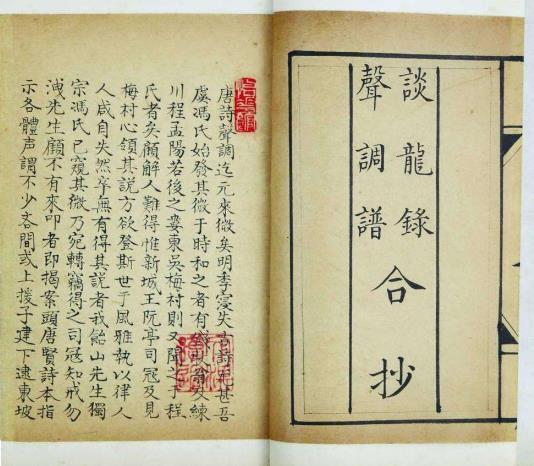 談龍錄
聲調譜
合抄
唐詩聲調迄元來微矣明季寖失古詩尤甚吾
虞馮氏始發其微于時和之者有錢牧翁及練
川程孟陽若後之婁東吳梅村則又聞之于程
氏者矣顧解人難得惟新城王阮亭司冠及見
梅村心領其說方欲登斯世于風雅執以律人
人咸自失然卒無有得其說者我飴山先生獨
宗馮氏已窺其微乃宛轉竊得之司冠知戒勿
洩先生顧不有來叩者即揭案頭唐賢詩本指
示各體声調不少吝間或上援子建下逮東坡